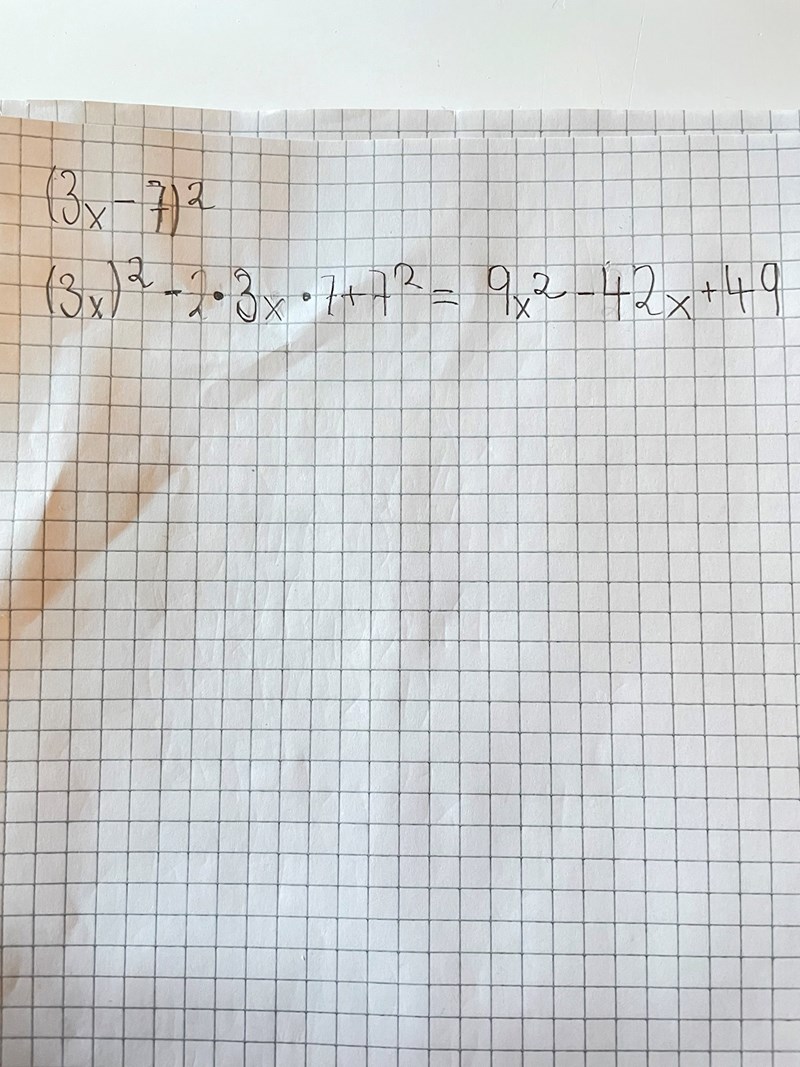 (3x-7)²
(3x)²-2·3x·7+7²= 9x²-42x+49